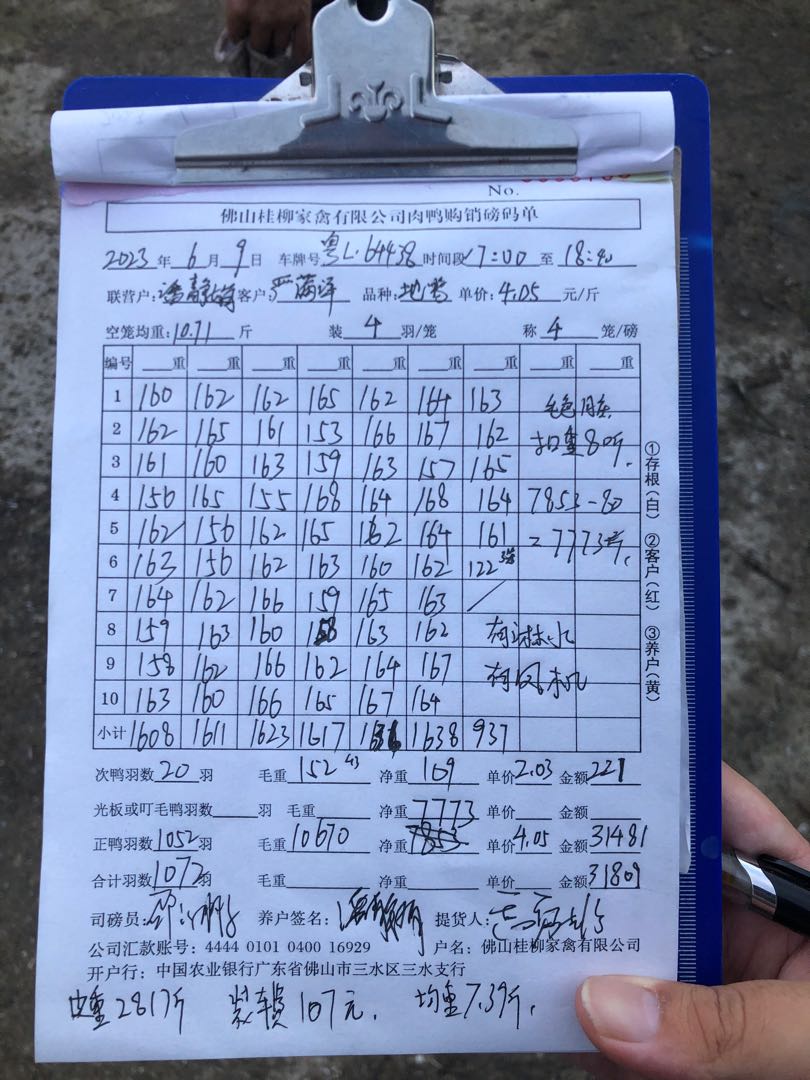 No.
佛山桂柳家禽有限公司肉鸭购销磅码单
2023 年 6 月 9 日 车牌号 粤L·64438 时间段 17:00 至 18:40
联营户: 潘静 客户: 严 品种: 单价: 4.05 元/斤
空笼均重: 10.71 斤 装 4 羽/笼 称 4 笼/磅
编号 重 重 重 重 重 重 重 重 重
1 160 162 162 165 162 164 163 毛色
2 162 165 161 153 166 167 162 扣重80斤.
3 161 160 163 159 163 157 165
4 156 165 155 168 164 168 164 7853-80
5 162 156 162 165 162 164 161 =7773斤.
6 163 156 162 163 160 162 122
7 164 162 166 159 165 163 /
8 159 163 160 158 163 162 有淋水
9 158 162 166 162 164 167 有风机
10 163 160 166 165 167 164
小计 1608 1611 1623 1617 1638 937
次鸭羽数 20 羽 毛重 152 43 净重 109 单价 2.03 金额 221
光板或叮毛鸭羽数 羽 毛重 净重 7773 单价 金额
正鸭羽数 1052 羽 毛重 10670 净重 7853 单价 4.05 金额 31481
合计羽数 1072 羽 毛重 净重 单价 金额 31809
司磅员: 养户签名: 潘静 提货人:
公司汇款账号: 4444 0101 0400 16929 户名: 佛山桂柳家禽有限公司
开户行: 中国农业银行广东省佛山市三水区三水支行
皮重2817斤 装车费107元. 均重7.39斤.
①存根(白) ②客户(红) ③养户(黄)